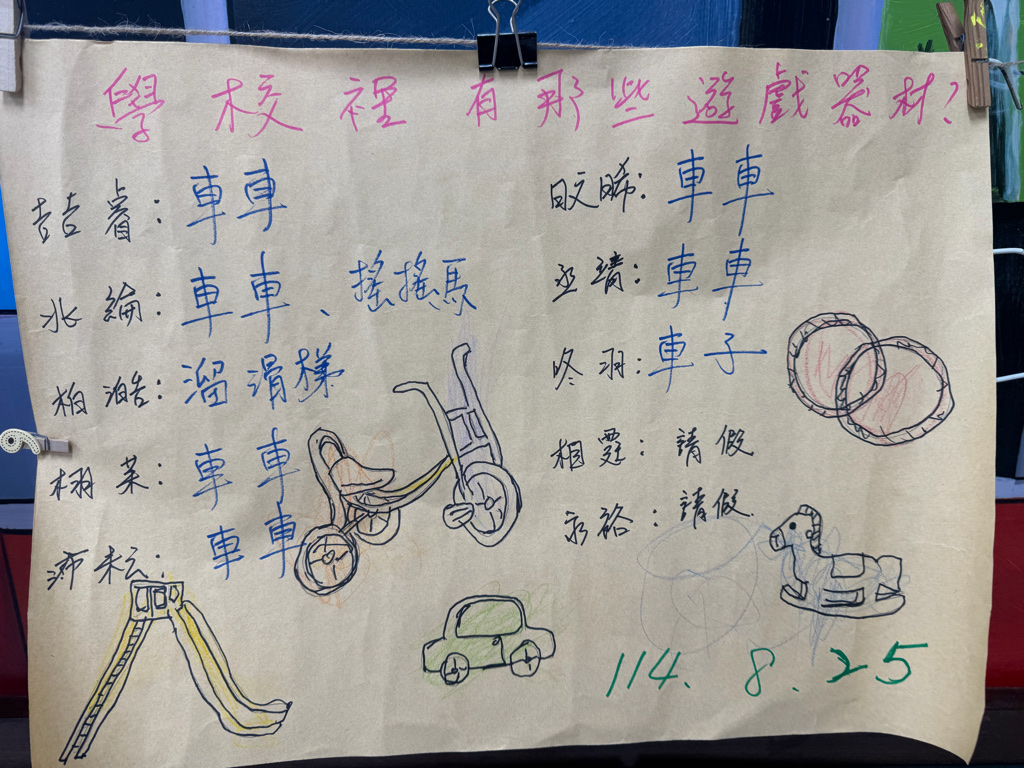 學校裡有那些遊戲器材?
喆睿:車車
北綸:車車、搖搖馬
柏澔:溜滑梯
栩茉:車車
沛耘:車車
旼晞:車車
丞靖:車車
咚羽:車子
相霆:請假
永裕:請假
114.8.25